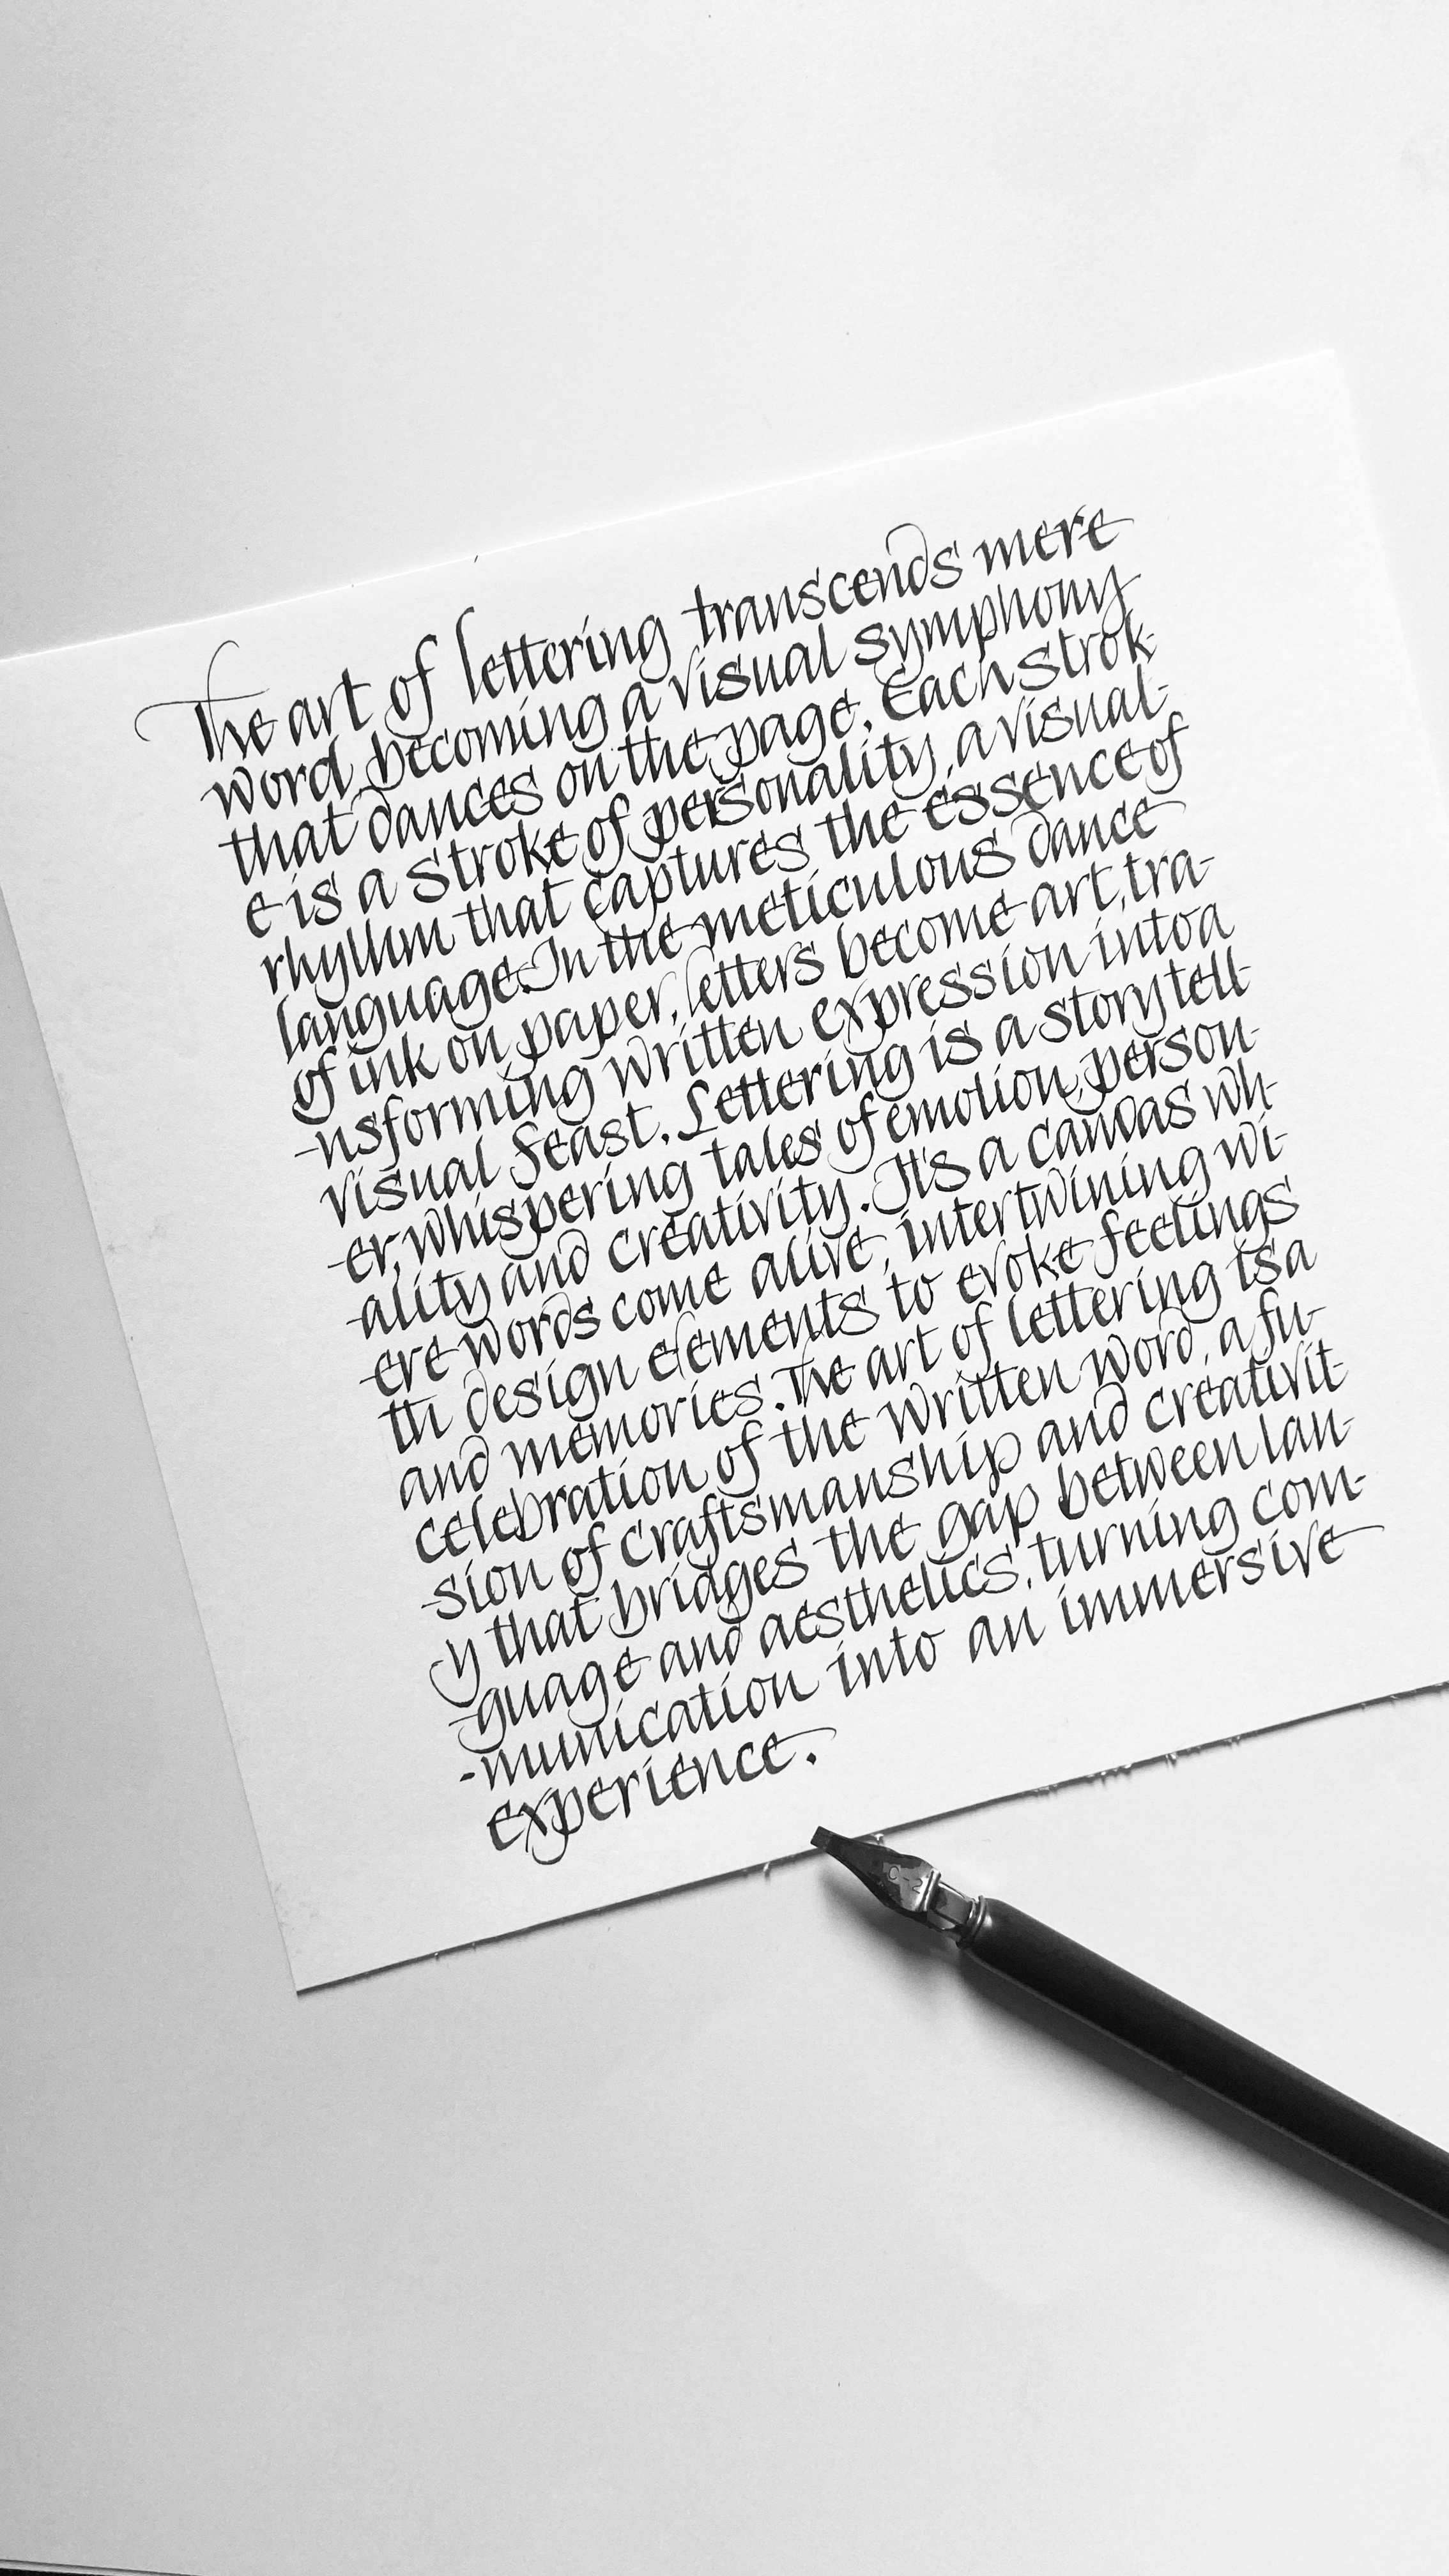 The art of lettering transcends mere
word, becoming a visual symphony
that dances on the page. Each strok-
e is a stroke of personality, a visual-
rhythm that captures the essence of
language. In the meticulous dance
of ink on paper, letters become art, tra-
-nsforming written expression into a
visual feast. Lettering is a storytell-
-er, whispering tales of emotion, person-
-ality and creativity. It's a canvas wh-
-ere words come alive, intertwining wi-
th design elements to evoke feelings
and memories. The art of lettering is a
celebration of the written word, a fu-
-sion of craftsmanship and creativit-
y that bridges the gap between lan-
-guage and aesthetics, turning com-
-munication into an immersive
experience.
C-2